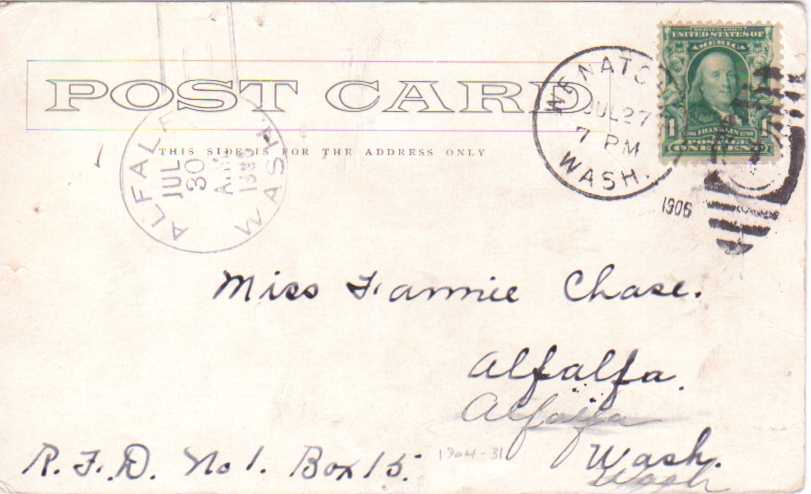 POST CARD
THIS SIDE IS FOR THE ADDRESS ONLY
ALFALFA
JUL
30
A.M.
WASH.
WENATCH
JUL 27
7 PM
WASH.
1906
UNITED STATES OF
AMERICA
1 1
POSTAGE
ONE CENT
Miss Fannie Chase.
Alfalfa.
Alfalfa
R.F.D. No 1. Box 15.
1904-31
Wash.
Wash